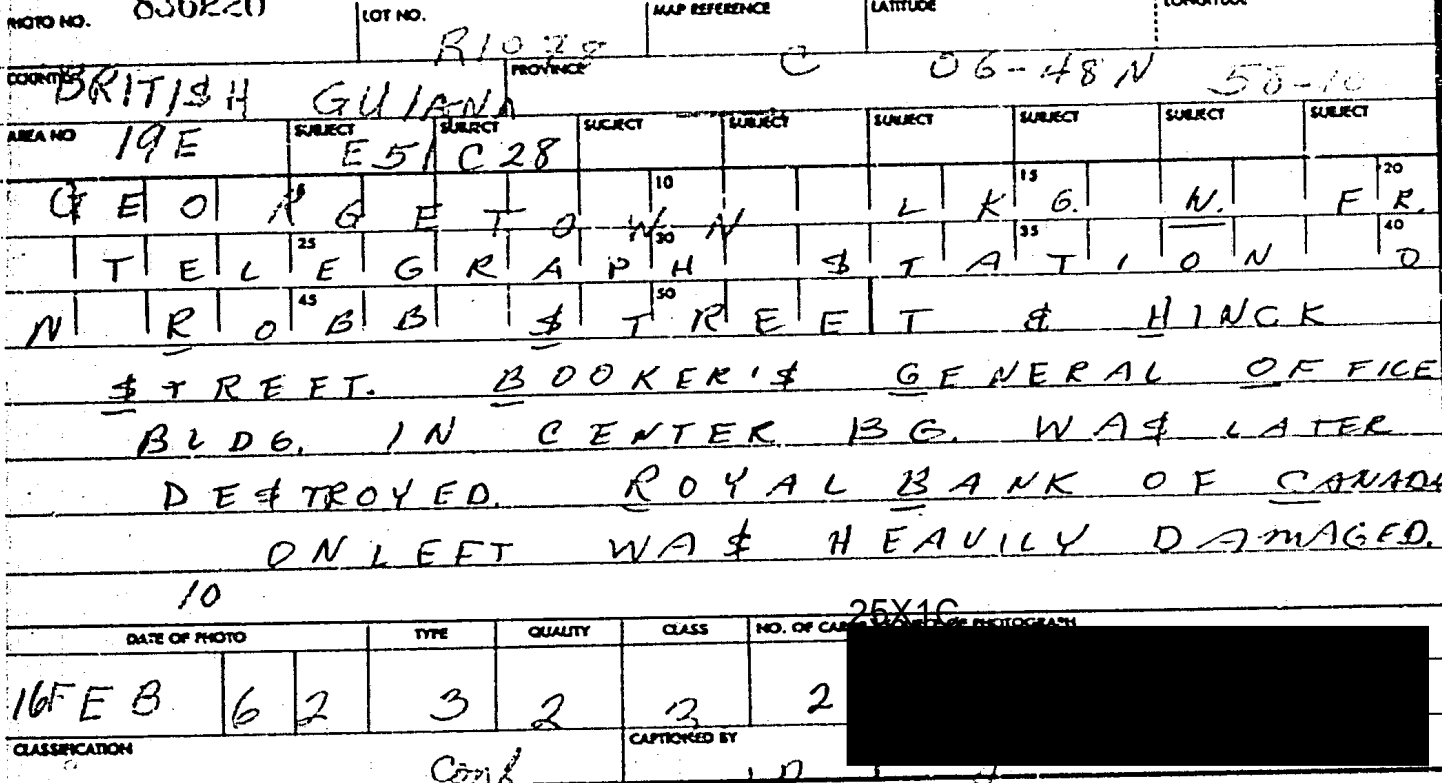 PHOTO NO. 836220 LOT NO. MAP REFERENCE LATITUDE LONGITUDE
R1020 C 06-48N 58-10
COUNTRY BRITISH GUIANA PROVINCE
AREA NO 19E SUBJECT E51 SUBJECT C28 SUBJECT SUBJECT SUBJECT SUBJECT SUBJECT SUBJECT
5 10 15 20
GEORGETOWN LKG. N. FR.
25 30 35 40
TELEGRAPH $TATION O
45 50
N ROBB $TREET & HINCK
$TREET. BOOKER'$ GENERAL OFFICE
BLDG. IN CENTER BG. WA$ LATER
DE$TROYED. ROYAL BANK OF CANADA
ON LEFT WA$ HEAVILY DAMAGED.
10
25X1C
DATE OF PHOTO TYPE QUALITY CLASS NO. OF OF PHOTOGRAPH
16FEB 62 3 2 3 2
CLASSIFICATION Conf CAPTIONED BY